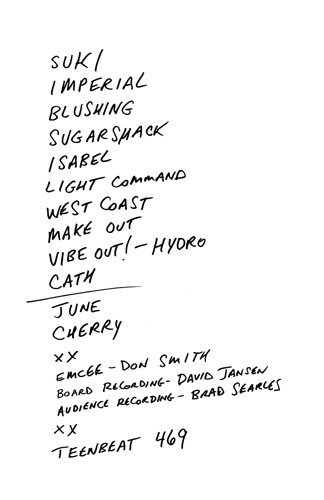 SUKI
IMPERIAL
BLUSHING
SUGARSHACK
ISABEL
LIGHT COMMAND
WEST COAST
MAKE OUT
VIBE OUT! - HYDRO
CATH
JUNE
CHERRY
XX
EMCEE - DON SMITH
BOARD RECORDING - DAVID JANSEN
AUDIENCE RECORDING - BRAD SEARLES
XX
TEENBEAT 469